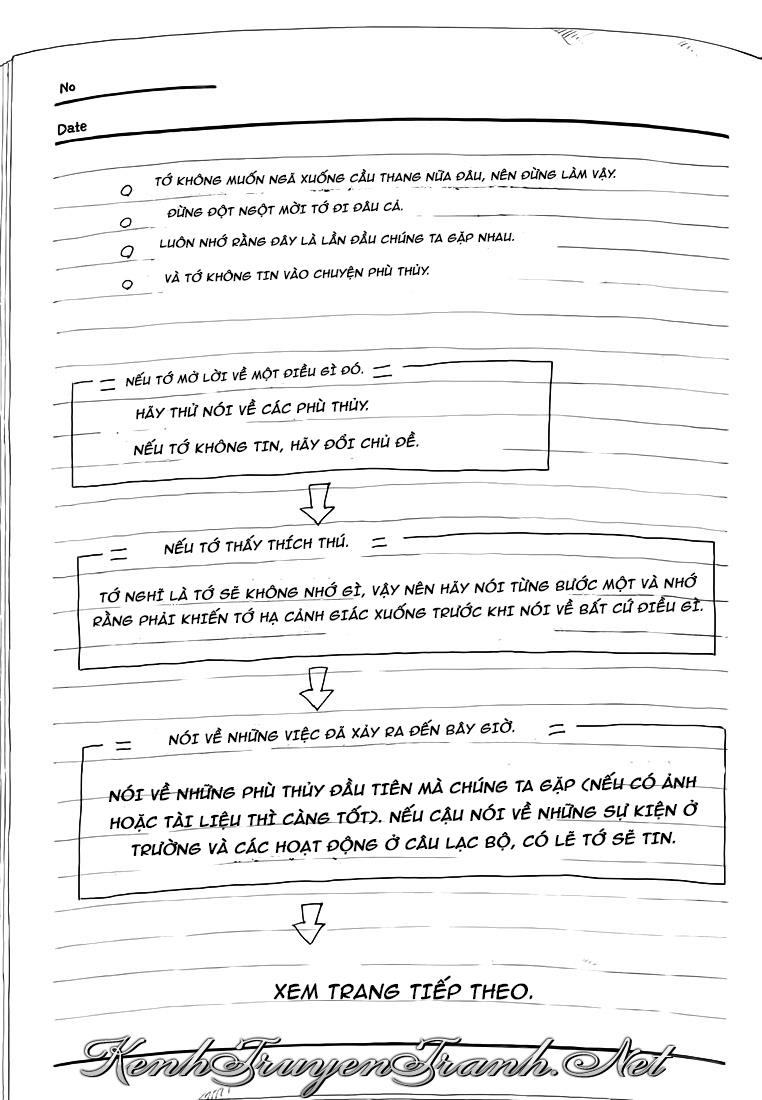 No
Date
TỚ KHÔNG MUỐN NGÃ XUỐNG CẦU THANG NỮA ĐÂU, NÊN ĐỪNG LÀM VẬY.
ĐỪNG ĐỘT NGỘT MỜI TỚ ĐI ĐÂU CẢ.
LUÔN NHỚ RẰNG ĐÂY LÀ LẦN ĐẦU CHÚNG TA GẶP NHAU.
VÀ TỚ KHÔNG TIN VÀO CHUYỆN PHÙ THỦY.
NẾU TỚ MỞ LỜI VỀ MỘT ĐIỀU GÌ ĐÓ.
HÃY THỬ NÓI VỀ CÁC PHÙ THỦY.
NẾU TỚ KHÔNG TIN, HÃY ĐỔI CHỦ ĐỀ.
NẾU TỚ THẤY THÍCH THÚ.
TỚ NGHĨ LÀ TỚ SẼ KHÔNG NHỚ GÌ, VẬY NÊN HÃY NÓI TỪNG BƯỚC MỘT VÀ NHỚ
RẰNG PHẢI KHIẾN TỚ HẠ CẢNH GIÁC XUỐNG TRƯỚC KHI NÓI VỀ BẤT CỨ ĐIỀU GÌ.
NÓI VỀ NHỮNG VIỆC ĐÃ XẢY RA ĐẾN BÂY GIỜ.
NÓI VỀ NHỮNG PHÙ THỦY ĐẦU TIÊN MÀ CHÚNG TA GẶP (NẾU CÓ ẢNH
HOẶC TÀI LIỆU THÌ CÀNG TỐT). NẾU CẬU NÓI VỀ NHỮNG SỰ KIỆN Ở
TRƯỜNG VÀ CÁC HOẠT ĐỘNG Ở CÂU LẠC BỘ, CÓ LẼ TỚ SẼ TIN.
XEM TRANG TIẾP THEO.
KenhTruyenTranh.Net